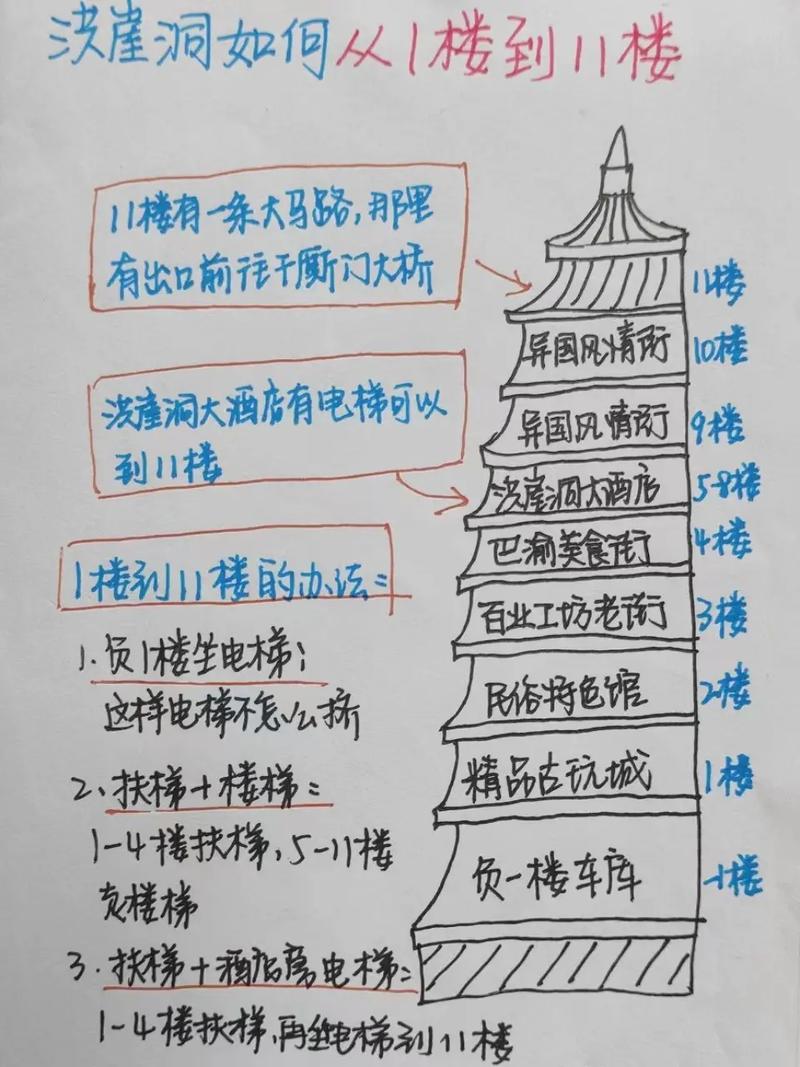 洪崖洞如何从1楼到11楼
11楼有一条大马路,那里
有出口前往千厮门大桥
11楼
异国风情街
10楼
异国风情街
9楼
洪崖洞大酒店有电梯可以
到11楼
洪崖洞大酒店
5-8楼
巴渝美食街
4楼
百业工坊老街
3楼
民俗特色馆
2楼
精品古玩城
1楼
负一楼车库
-1楼
1楼到11楼的办法:
1.负1楼坐电梯;
这样电梯不怎么挤
2、扶梯+楼梯:
1-4楼扶梯,5-11楼
爬楼梯
3.扶梯+酒店电梯:
1-4楼扶梯,再坐电梯到11楼